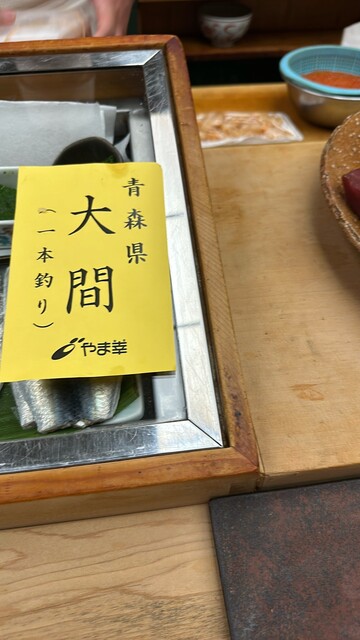 青森県
大間
（一本釣り）
やま幸